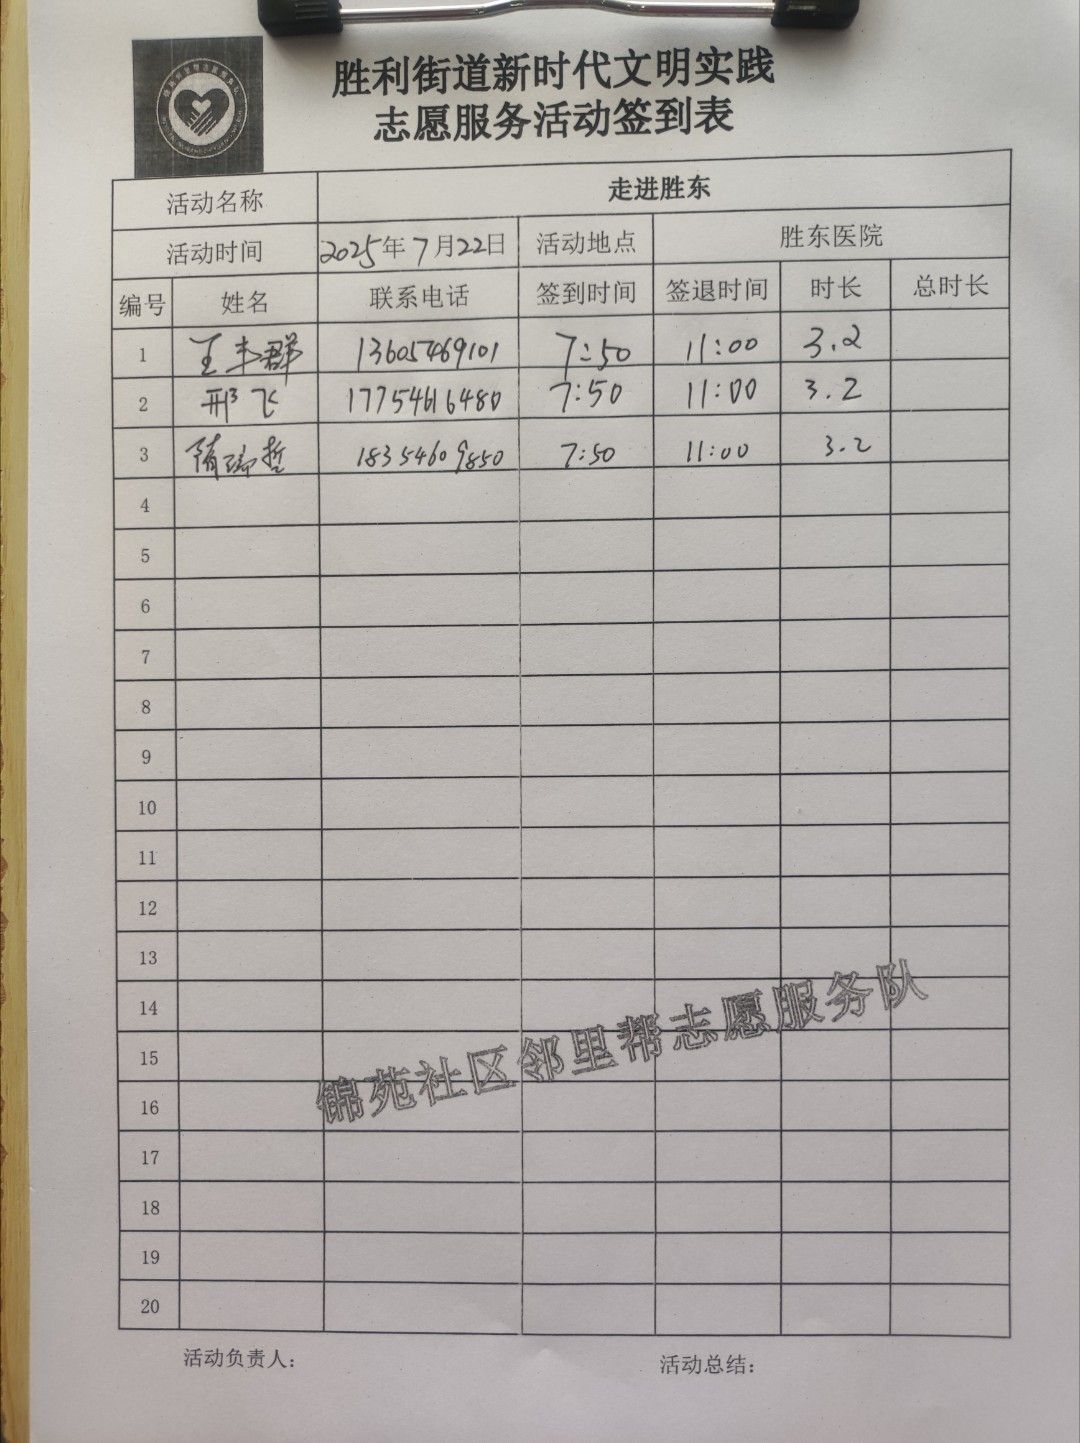 胜利街道新时代文明实践
志愿服务活动签到表
活动名称 走进胜东
活动时间 2025年7月22日 活动地点 胜东医院
编号 姓名 联系电话 签到时间 签退时间 时长 总时长
1 王丰群 13605469101 7:50 11:00 3.2
2 邢飞 17754616480 7:50 11:00 3.2
3 隋瑞哲 18354609850 7:50 11:00 3.2
4
5
6
7
8
9
10
11
12
13
14
15
16
17
18
19
20
锦苑社区邻里帮志愿服务队
活动负责人: 活动总结: